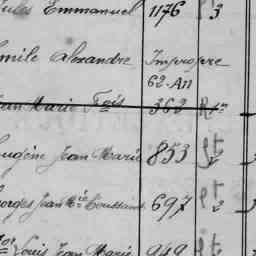 ules Emmanuel 1176 3
mile Alexandre Impropre
62-A11
ean Marie Fois 362
ugène Jean Marie 853
orges Jean Mie Toussaint 697 2
Louis Jean Marie 949